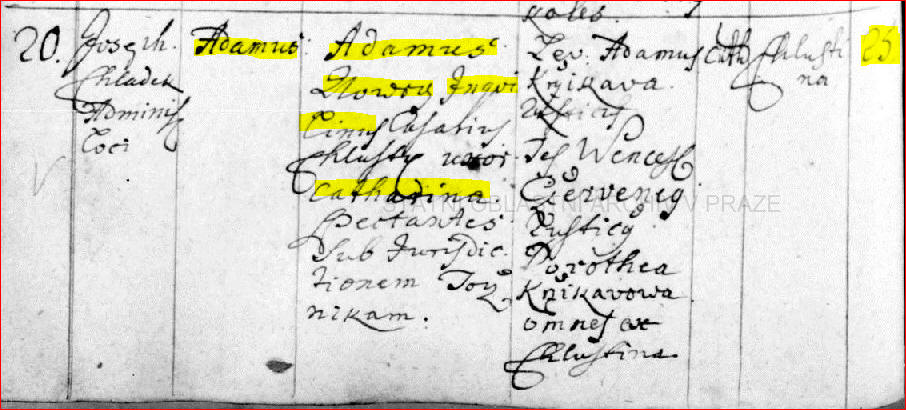 koles.
20.
Joseph.
Chladek
Adminis
Loci
Adamus
Adamus
Nowey Inqui
linus Casarius
Chlusty uxor
Catharina.
Spectantes
Sub Jurisdic
tionem Toÿ
nikam.
Lev. Adamus
Křikava.
Rusticus
Tes Wencesl
Czerveny
Rusticus
Dorothea
Křikavowa
omnes ex
Chlustina
Cath
Chlusti
na
25.
STÁTNÍ OBLASTNÍ ARCHIV V PRAZE